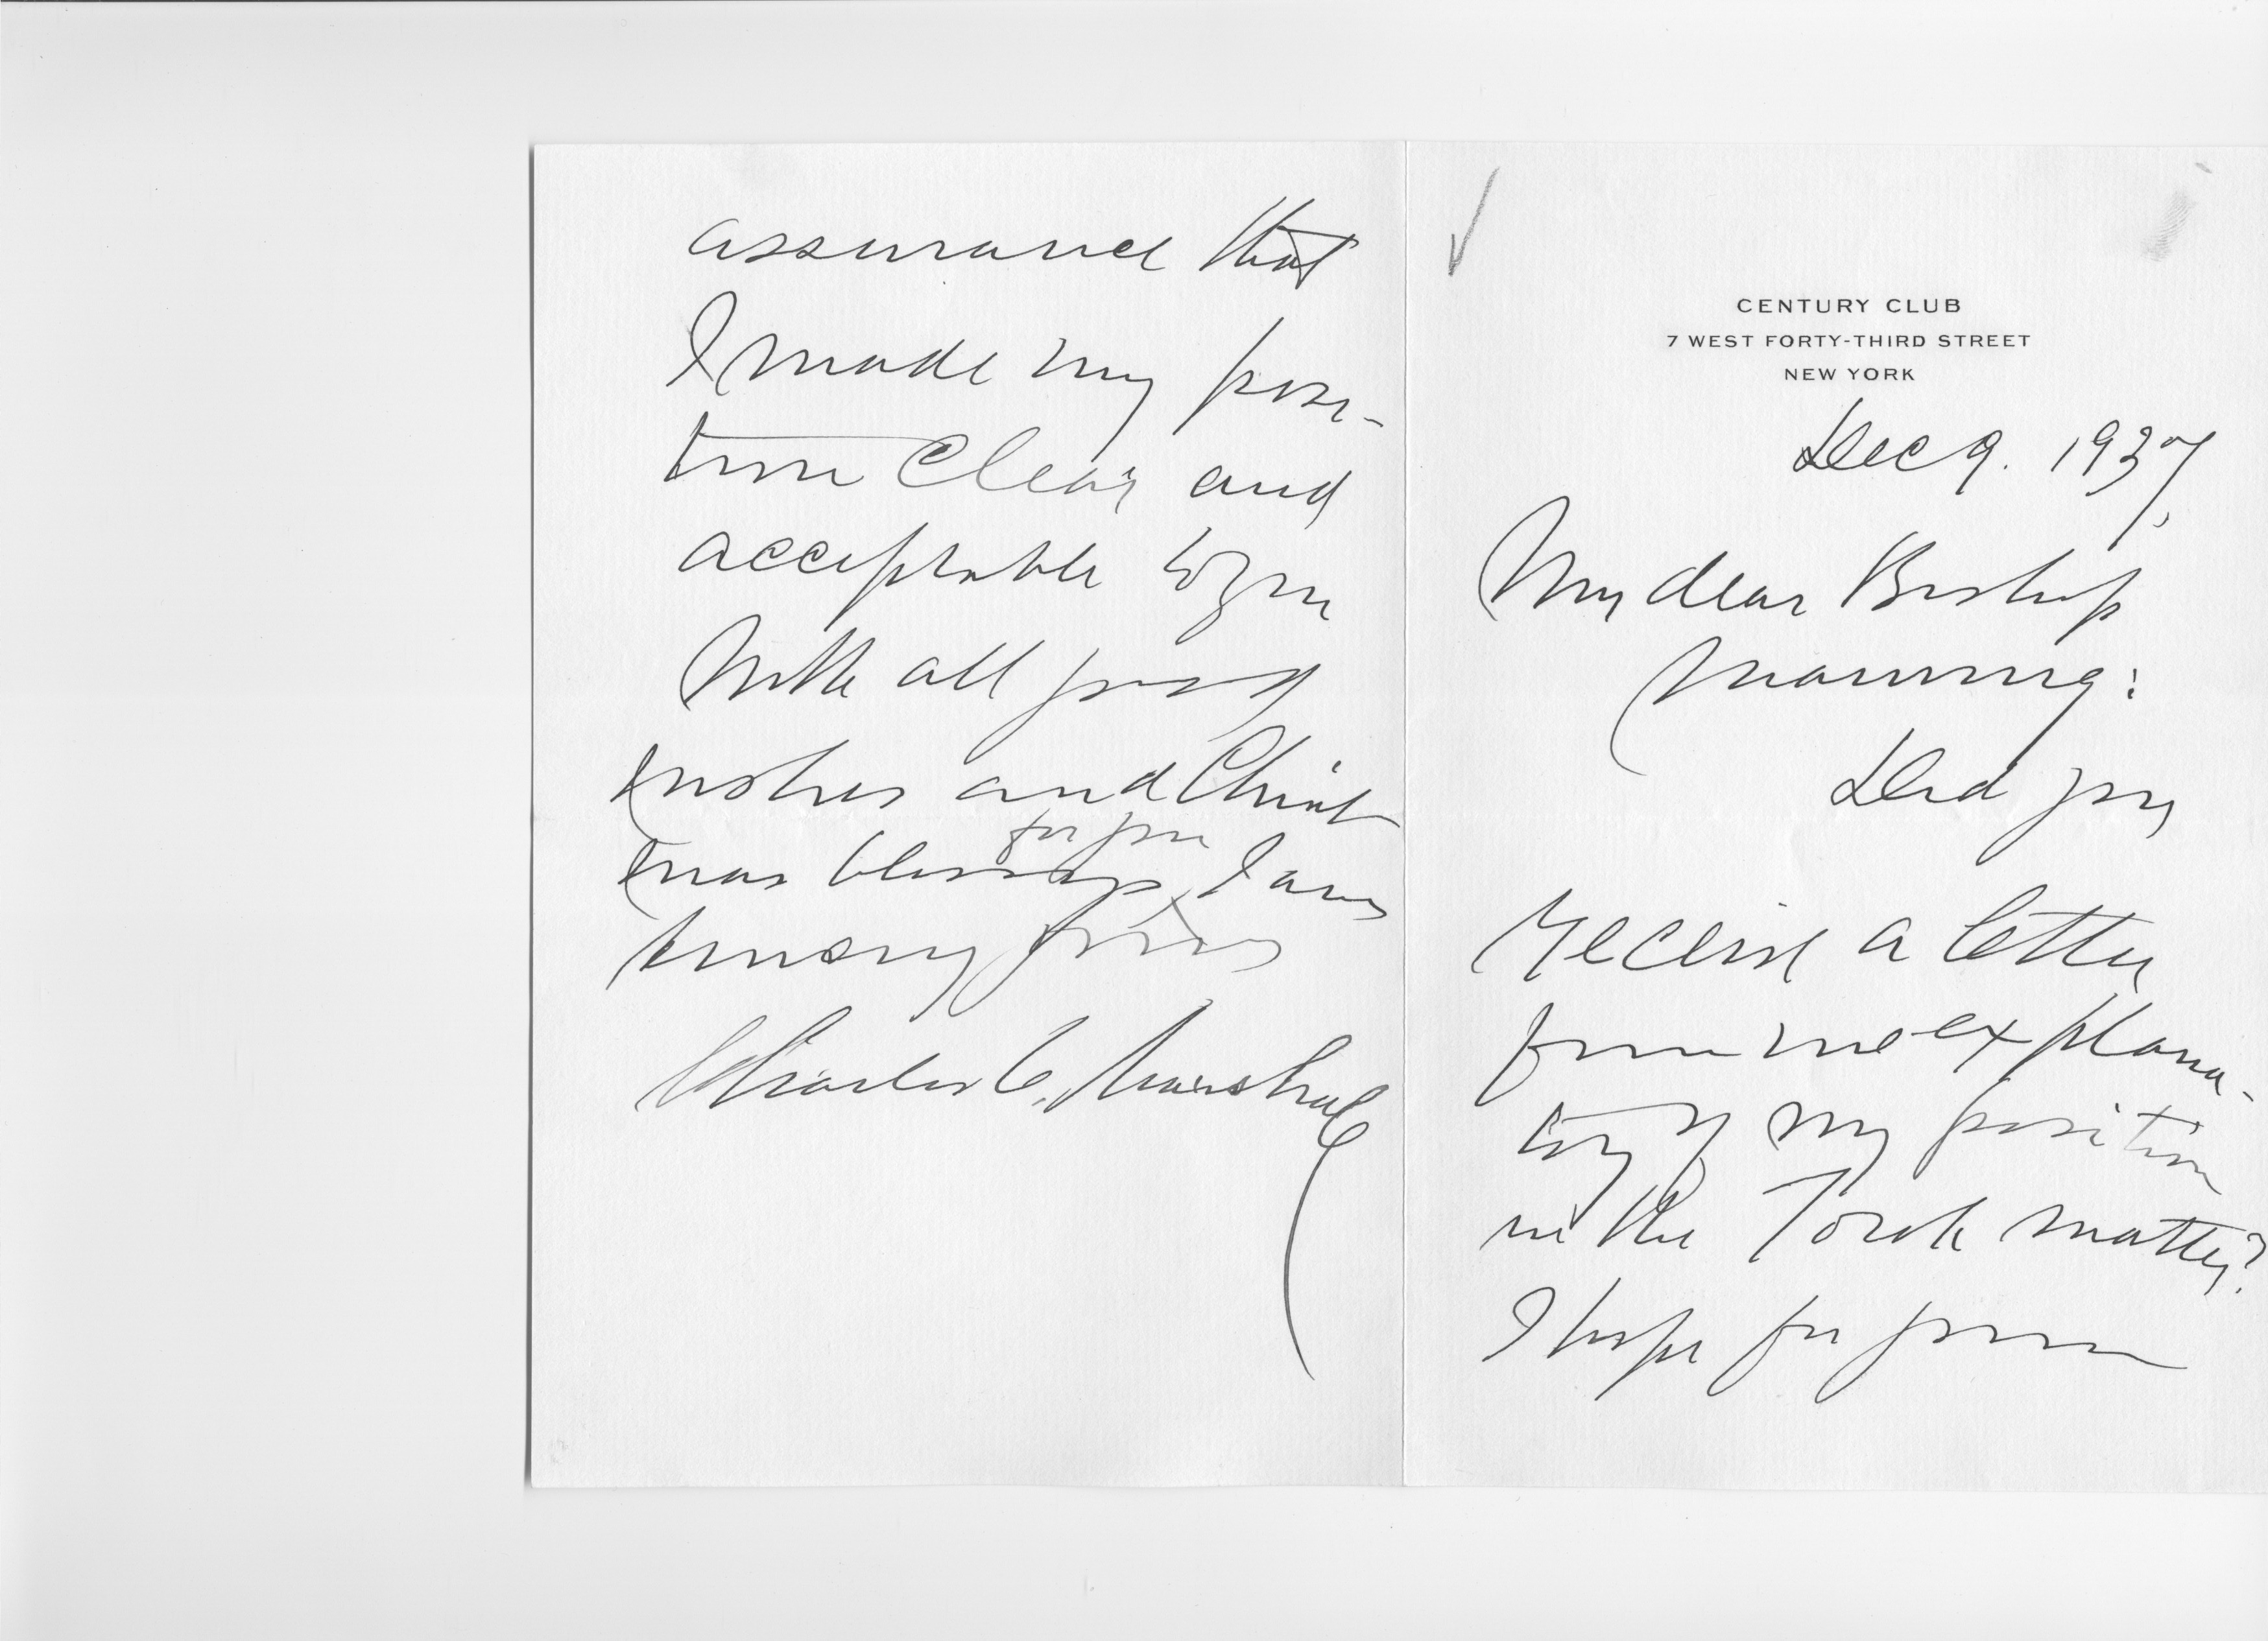 CENTURY CLUB
7 WEST FORTY-THIRD STREET
NEW YORK
Dec 9. 1937,
My dear Bishop
Manning:
Did you
receive a letter
from me explana-
tory of my position
in the Torok matter?
I hope for your
assurance that
I made my posi-
tion clear and
acceptable to you
With all good
wishes and Christ
mas blessings for you, I am
sincerely yours
Charles C. Marshall